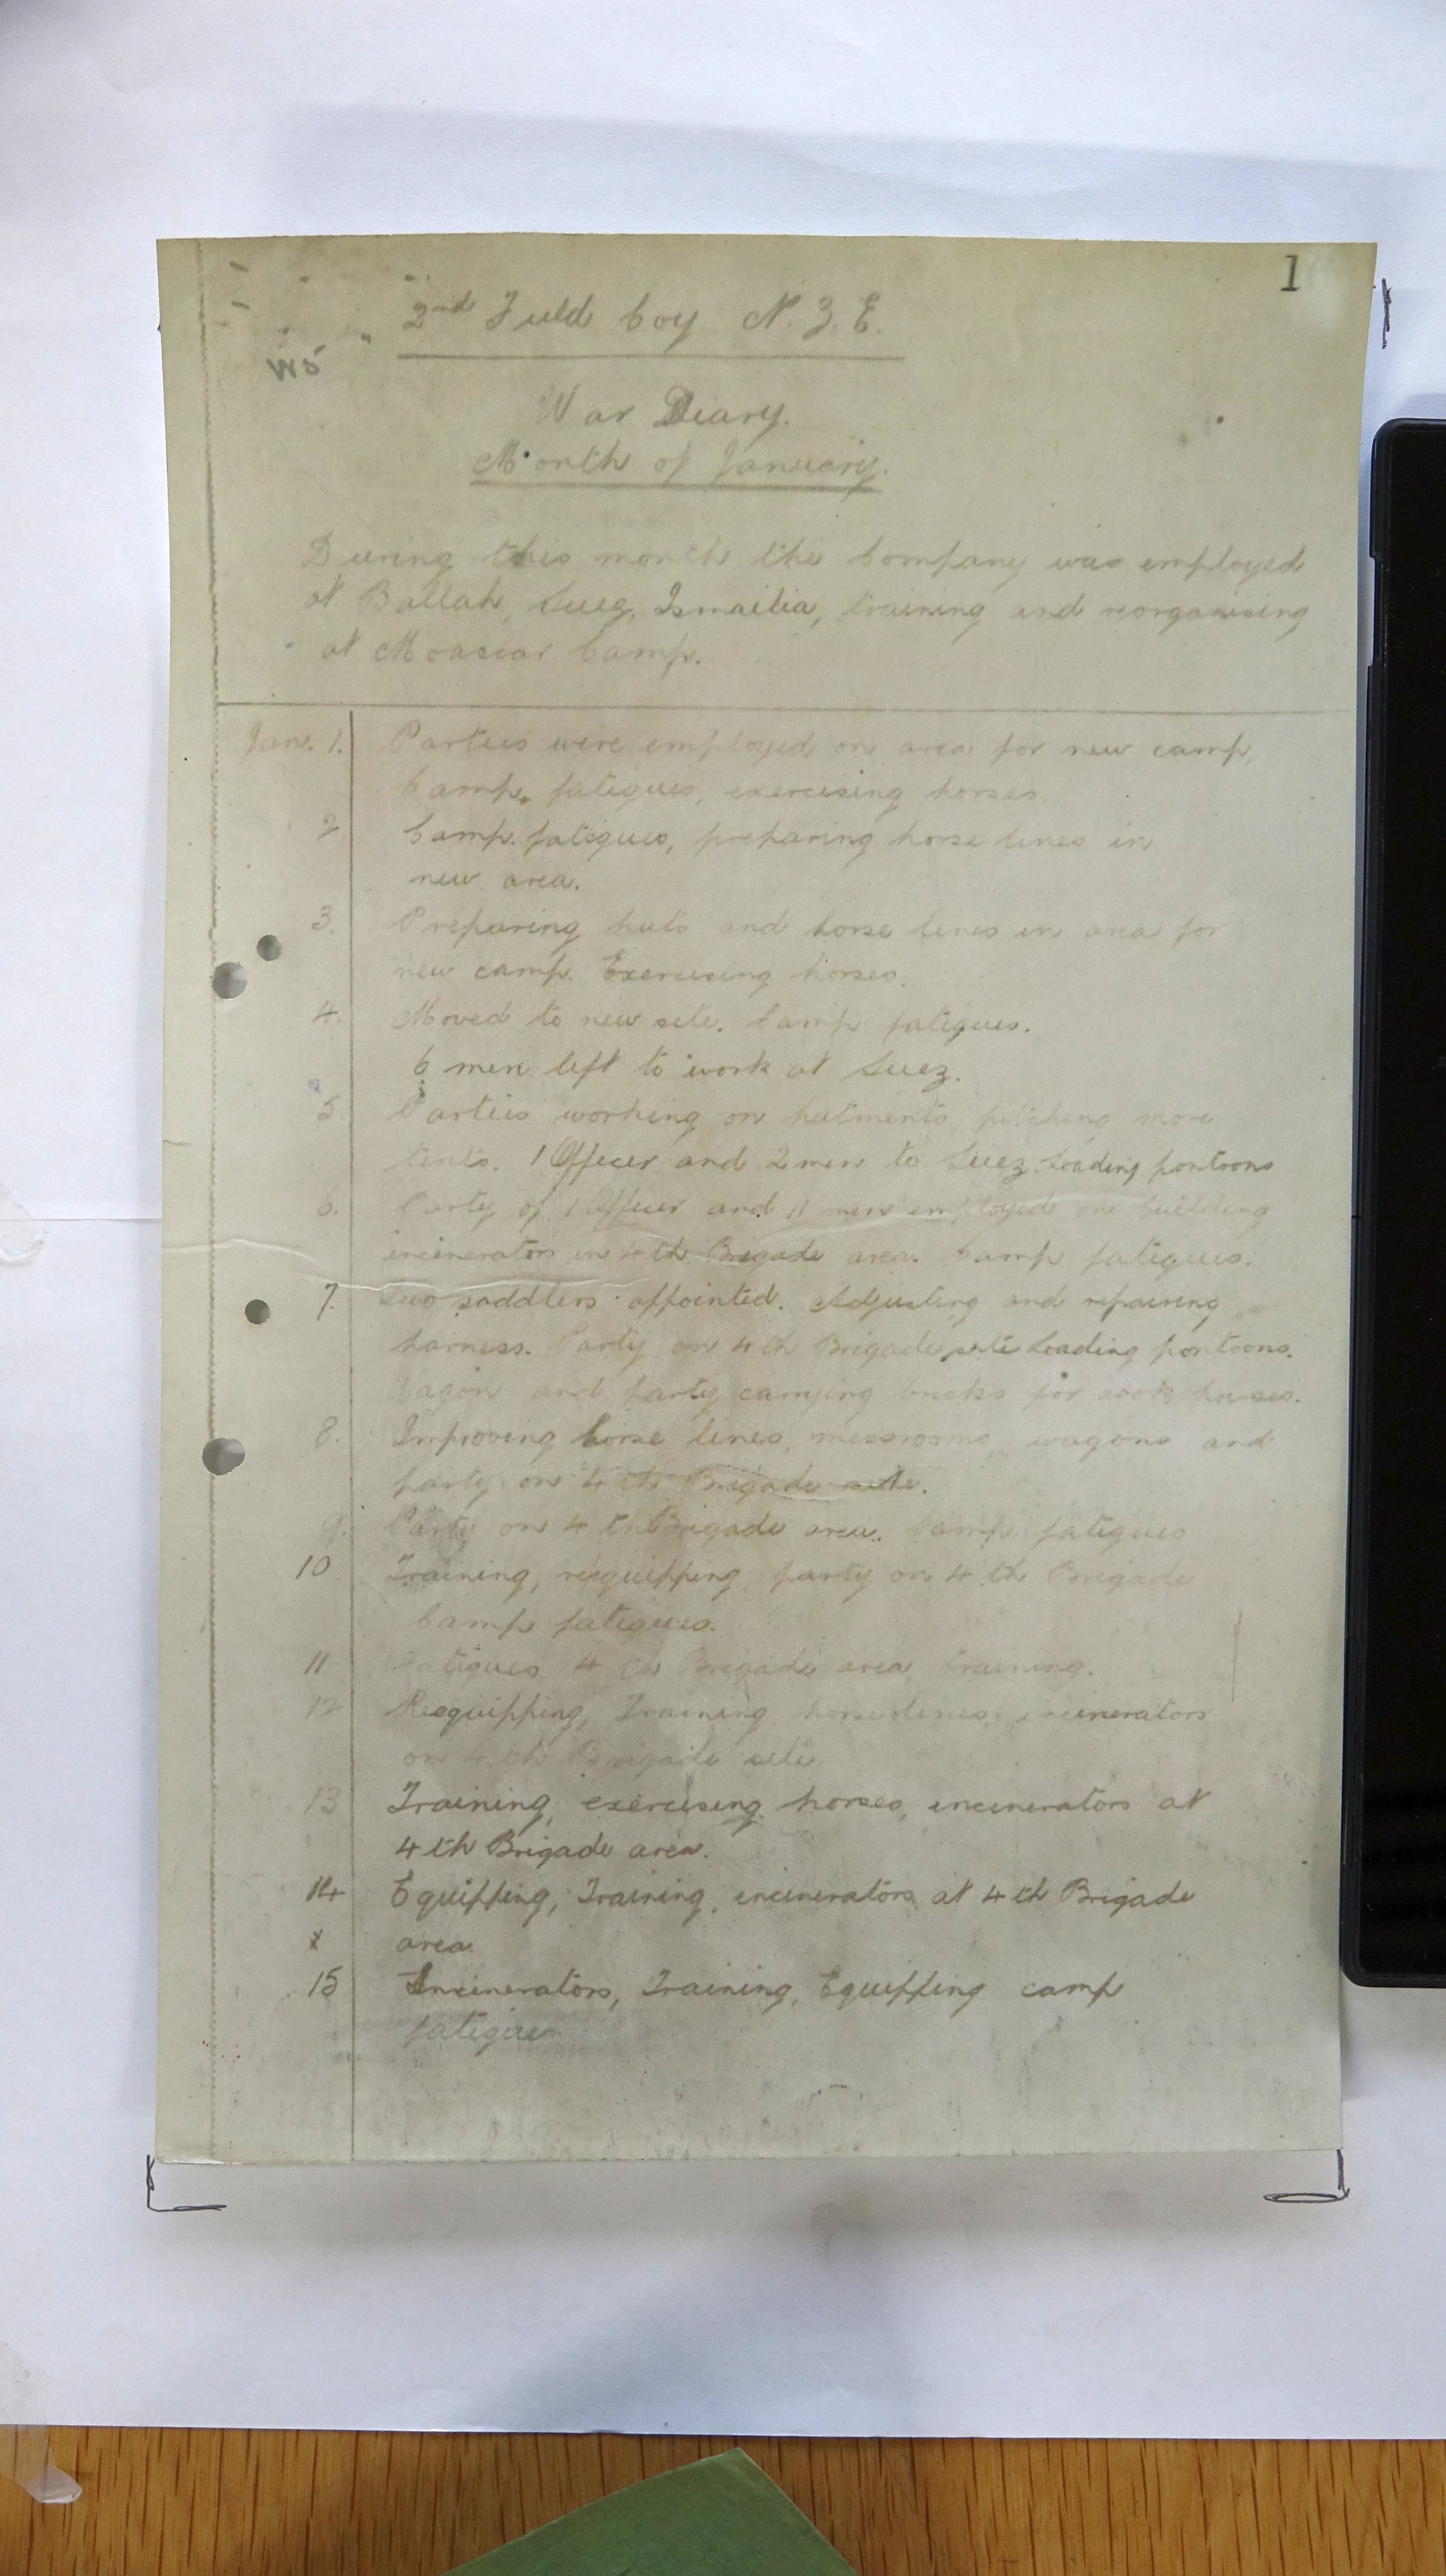 1
2nd Field Coy N.Z.E.
W5
War Diary.
Month of January.
During this month the Company was employed
at Ballah, Suez, Ismailia, training and reorganising
at Moascar Camp.
Jan. 1. Parties were employed on area for new camp,
Camp. fatigues, exercising horses.
2. Camp. fatigues, preparing horse lines in
new area.
3. Preparing huts and horse lines in area for
new camp. Exercising horses.
4. Moved to new site. Camp fatigues.
6 men left to work at Suez.
5. Parties working on hutments, pitching more
tents. 1 Officer and 2 men to Suez. Loading pontoons
6. Party of 1 Officer and 11 men employed on building
incinerators in 4th Brigade area. Camp fatigues.
7. Two saddlers appointed. Adjusting and repairing
harness. Party on 4th Brigade site Loading pontoons.
Wagon and party carrying bricks for cook houses.
8. Improving horse lines, messrooms, wagons and
party on 4th Brigade site.
9. Party on 4th Brigade area. Camp fatigues
10. Training, reequipping, party on 4th Brigade
Camp fatigues.
11 Fatigues 4th Brigade area, training.
12 Reequipping, Training horse lines, incinerators
on 4th Brigade site.
13 Training, exercising horses, incinerators at
4th Brigade area.
14 Equipping, Training, incinerators at 4th Brigade
x area.
15 Incinerators, Training, Equipping camp
fatigues